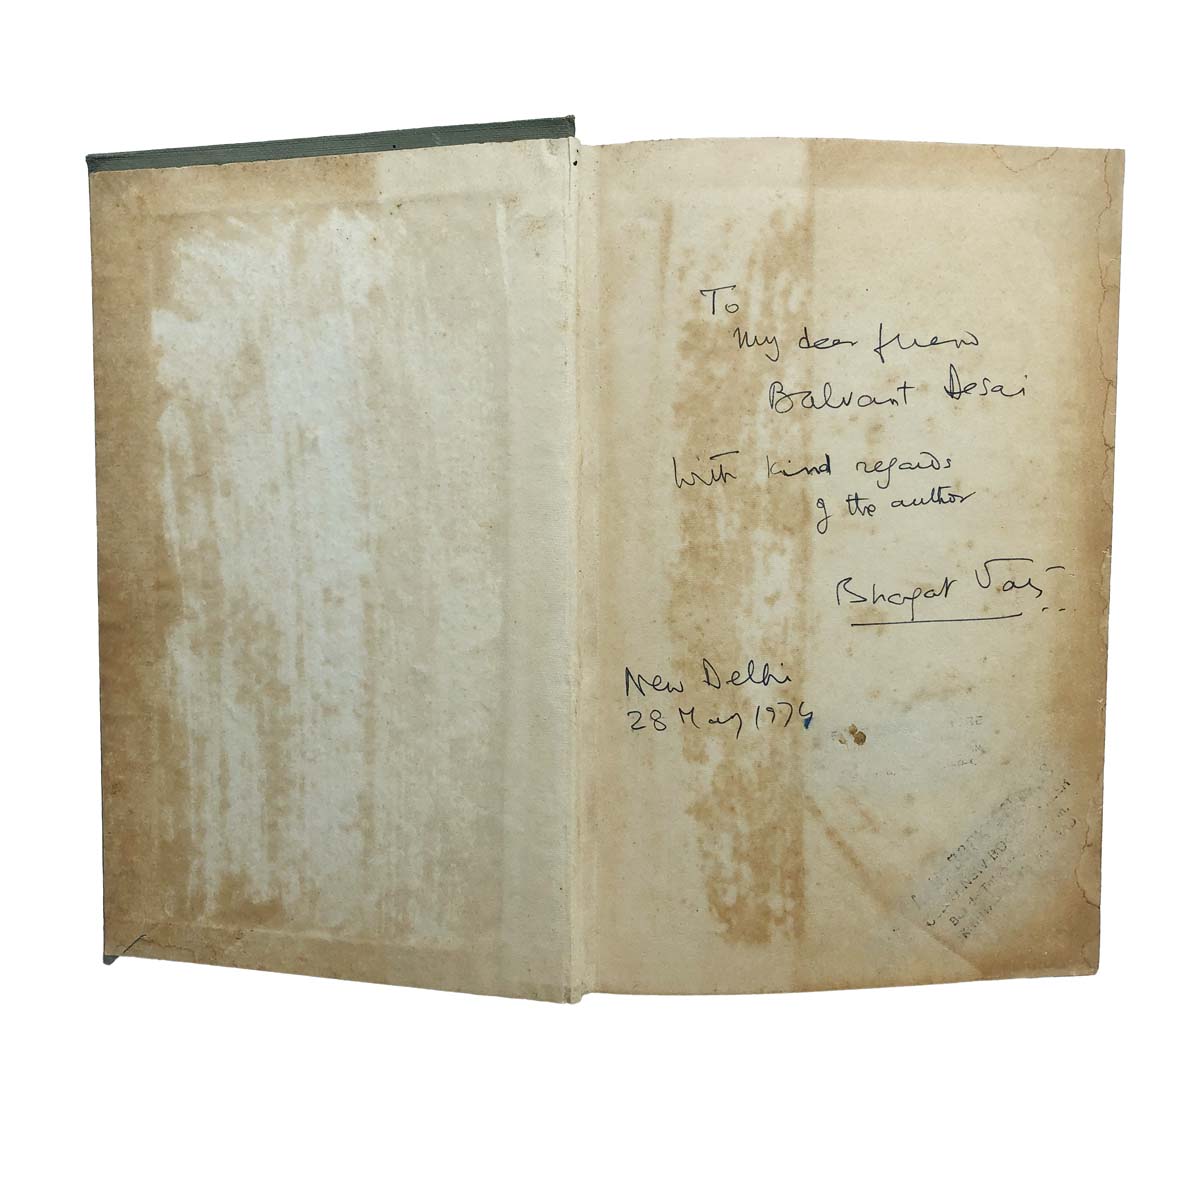 To
My dear friend
Balvant Desai
With kind regards
of the author
Bhagat Vats
New Delhi
28 May 1974